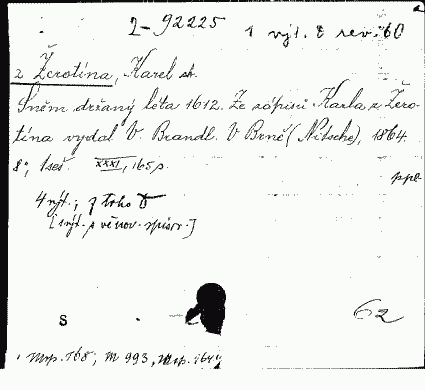 2-92225 1 výt. č rev. 60
z Žerotína, Karel st.
Sněm držaný léta 1612. Ze zápisů Karla z Žero-
tína vydal V. Brandl. V Brně (Nitsche), 1864.
8°, 1 seš. XXXI, 165 s.
ppb.
4 výt., z toho
[1 výt. s věnov.
S 62
Mrp. 168, M 993, Mrp. 164